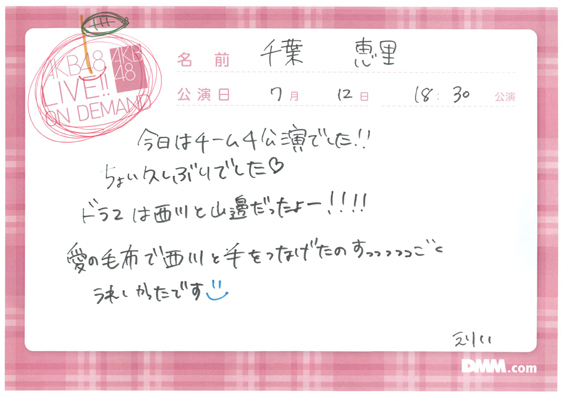 AKB48
LIVE!!
ON DEMAND
AKB
48
名前 千葉 恵里
公演日 7月 12日 18:30 公演
今日はチーム4公演でした!!
ちょい久しぶりでした♡
ドラフは西川と山邊だったよー!!!!
愛の毛布で西川と手をつなげたのすっっっっっごく
うれしかったです
えりい
DMM.com